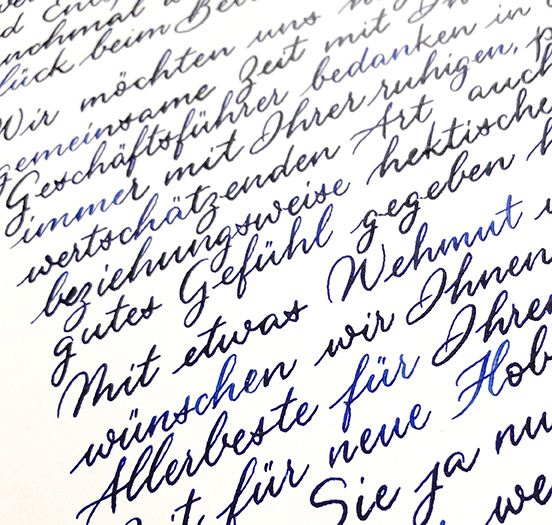 nchmal
lück beim
Wir möchten uns
gemeinsame Zeit mit
Geschäftsführer bedanken in
immer mit Ihrer ruhigen,
wertschätzenden Art auch
beziehungsweise hektische
gutes Gefühl gegeben
Mit etwas Wehmut
wünschen wir Ihnen
Allerbeste für Ihre
für neue Hob
Sie ja nu
we